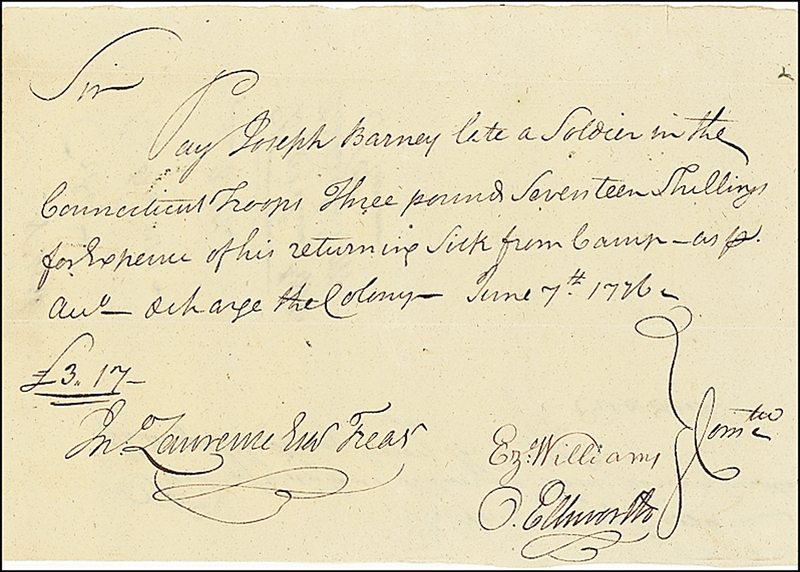 Sir
Pay Joseph Barney late a Soldier in the
Connecticut Troops Three pounds Seventeen Shillings
for Expence of his returning Sick from Camp – as p.
Accº – & charge the Colony – June 7th. 1776 –
£3. 17 –
Jnº Lawrence Esqr Treasr
Ez: Williams
O. Ellsworth
Comtee